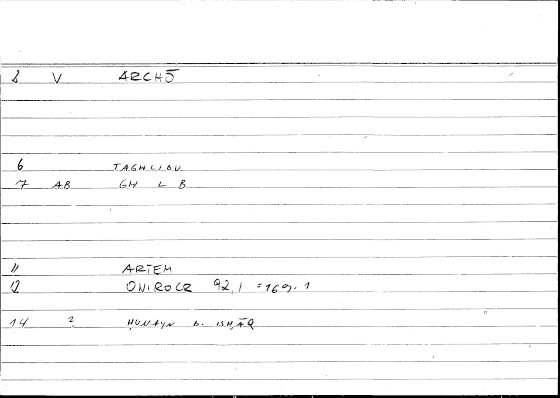 8 V ARCHŌ
6 TAGHLIBU
7 AB GH L B
11 ARTEM
12 ONIROCR 92,1 = 169.1
14 2 ḤUNAYN B. ISḤĀQ